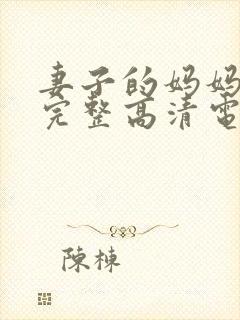 妻子的妈妈
完整高清電
陳棟